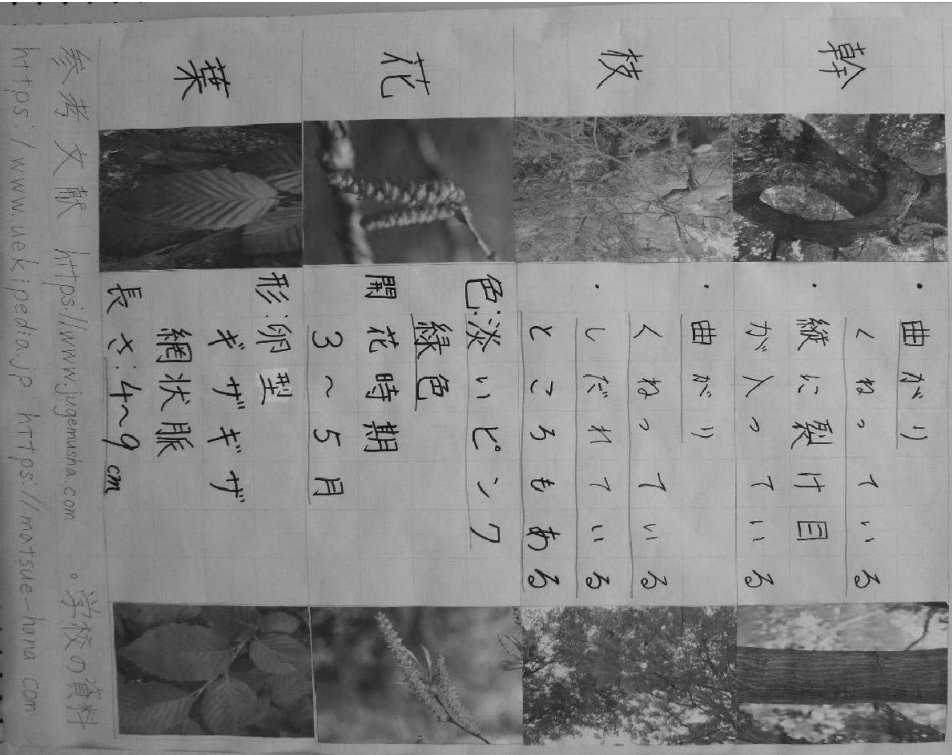 幹
・曲がり
くねっている
・縦に裂け目
が入っている
枝
・曲がり
くねっている
・しだれている
ところもある
花
色:淡いピンク
緑色
開花時期
3〜5月
葉
形:卵型
ギザギザ
網状脈
長さ:4〜9cm
参考文献 https://www.jugemusha.com 。学校の資料
https:/www.uekipedia.jp https://matsue-hana.com